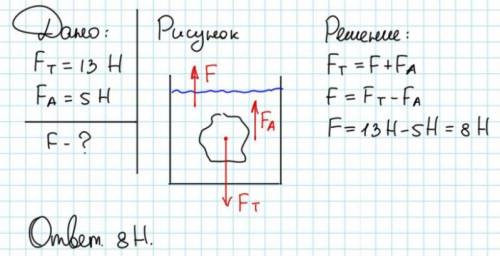 Дано:
F_T = 13 H
F_A = 5 H
F - ?
Рисунок
F
F_A
F_T
Решение:
F_T = F + F_A
F = F_T - F_A
F = 13 H - 5 H = 8 H
Ответ. 8 H.